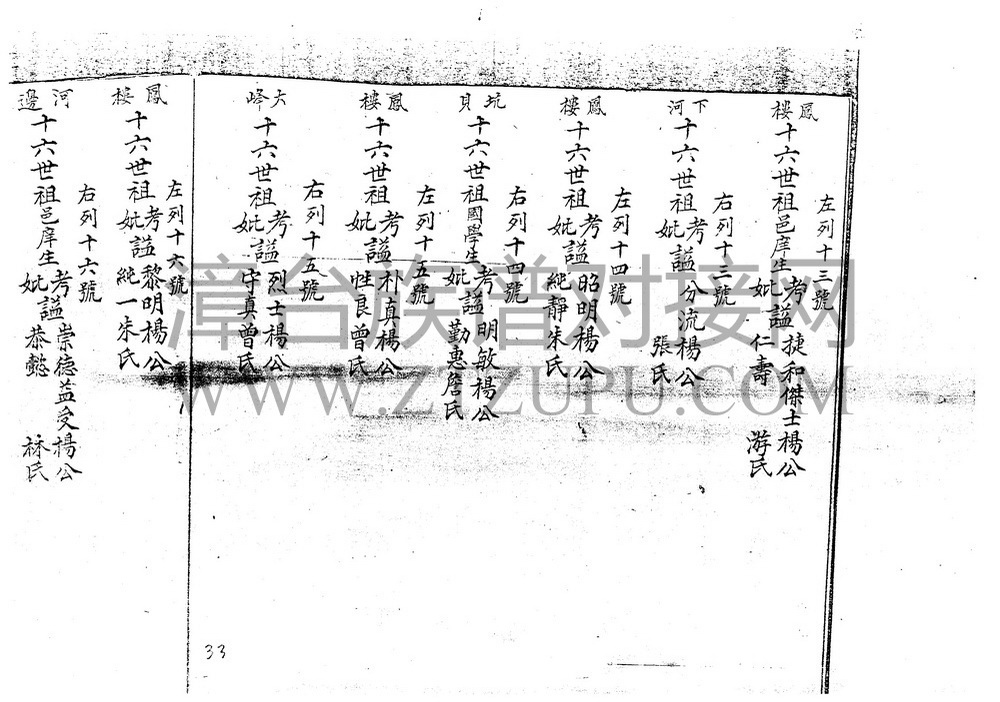 左列十三號
鳳樓 十六世祖邑庠生考妣謚 捷和傑士楊公 仁壽 游氏
右列十三號
下河 十六世祖考妣謚 分流楊公 張氏
左列十四號
鳳樓 十六世祖考妣謚 昭明楊公 純靜朱氏
右列十四號
坑貝 十六世祖國學生考妣謚 明敏楊公 勤惠詹氏
左列十五號
鳳樓 十六世祖考妣謚 朴真楊公 性良曾氏
右列十五號
大峰 十六世祖考妣謚 烈士楊公 守真曾氏
左列十六號
鳳樓 十六世祖考妣謚 黎明楊公 純一朱氏
右列十六號
河邊 十六世祖邑庠生考妣謚 崇德益受楊公 恭懿 林氏
33
漳台族谱对接网
WWW.ZTZUPU.COM